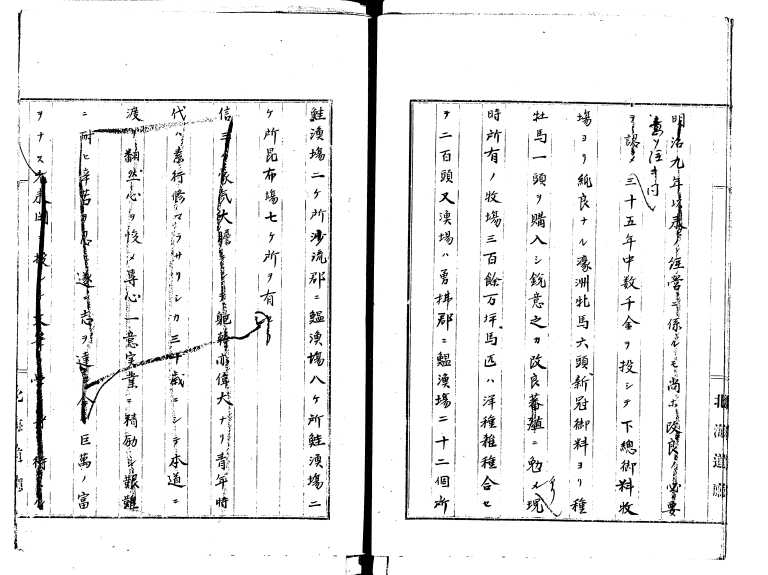 明治九年以来ノ経営ニ係ルモ尚ホ改良ノ必要
ヲ認メ三十五年中数千金ヲ投シテ下總御料牧
場ヨリ純良ナル濠洲牝馬六頭新冠御料ヨリ種
牡馬一頭ヲ購入シ鋭意之カ改良蕃殖ニ勉メ現
時所有ノ牧場三百餘万坪馬匹ハ洋種雑種合セ
テ二百頭又漁場ハ勇拂郡ニ鰮漁場二十二個所
北海道廳
鮭漁場二ケ所沙流郡ニ鰮漁場八ケ所鮭漁場二
ケ所昆布場七ケ所ヲ有
信三ノ豪気大膽ニシテ躯幹亦偉大ナリ青年時
代ハ素行修マラサリシカ三十歳ニシテ本道ニ
渡リ翻然心ヲ悛メ専心一意実業ニ精励シ艱難
ニ耐ヒ辛苦ヲ忍ヒ遂ニ志ヲ達シ今ヤ巨萬ノ富
ヲナス
北海道廳